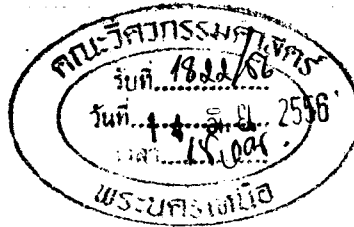 คณะวิศวกรรมศาสตร์
รับที่ 1822/56
วันที่ 14 มิ.ย. 2556
เวลา
พระนครเหนือ